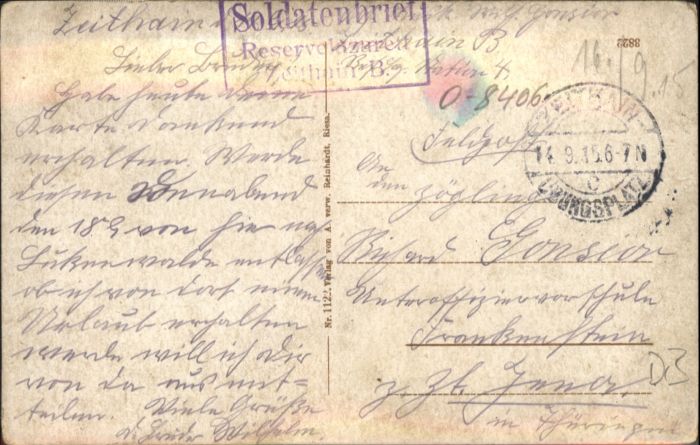 Zeithain
Soldatenbrief
Reservelazarett
Zeithain B.
Lieber Bruder
Habe heute deine
Karte dankend
erhalten. Werde
diesen Sonnabend
den 18.9 von hier nach
Lukenwalde entlassen
ob ich von dort einen
Urlaub erhalten
werde will ich Dir
von da aus mit=
teilen. Viele Grüße
d. Bruder Wilhelm.
Nr. 1122. Verlag von A. verw. Reinhardt, Riesa.
3822
16. 9. 15
0-8406
ZEITHAIN
14. 9. 15. 6-7 N
c
ÜBUNGSPLATZ
Feldpost
An
den Zögling
Richard Gonsior
Unteroffiziervorschule
Frankenstein
z. Zt. Jena
in Thüringen
D3